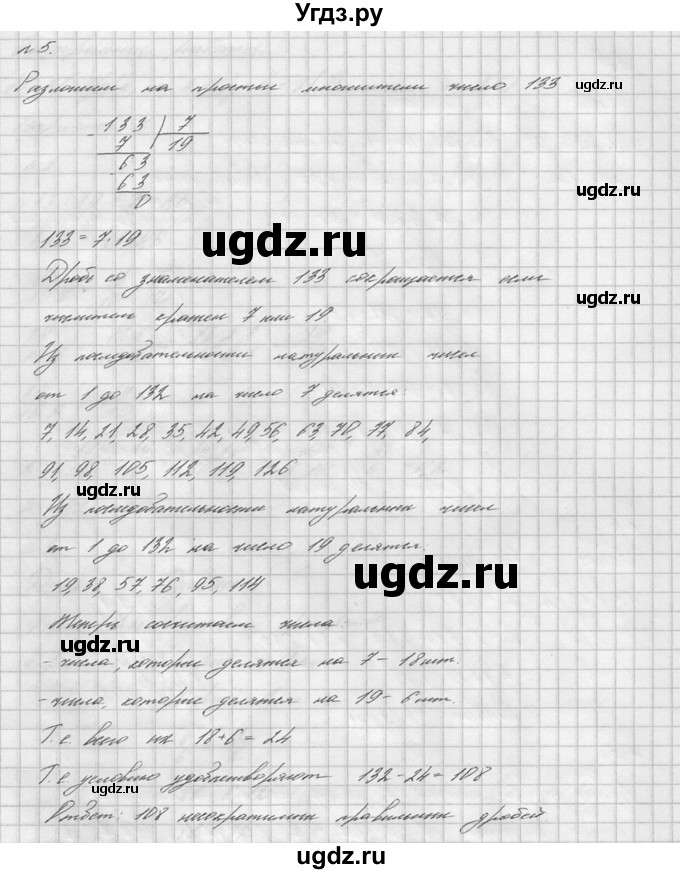 Угдз.ру
№ 5.
Разложим на простые множители число 133
ugdz.ru
- 133 | 7
7 | 19
63
- 63
0
ugdz.ru
133 = 7 · 19
ugdz.ru
Дробь со знаменателем 133 сокращается если
ugdz.ru
числитель кратен 7 или 19
Из последовательности натуральных чисел
от 1 до 132 на число 7 делятся:
7, 14, 21, 28, 35, 42, 49, 56, 63, 70, 77, 84,
91, 98, 105, 112, 119, 126
ugdz.ru
Из последовательности натуральных чисел
от 1 до 132 на число 19 делятся.
ugdz.ru
19, 38, 57, 76, 95, 114
Теперь сосчитаем числа:
ugdz.ru
- числа, которые делятся на 7 - 18 шт.
- числа, которые делятся на 19 - 6 шт.
Т.е. всего их 18+6 = 24
ugdz.ru
Т.е условию удовлетворяют 132-24=108
Ответ: 108 несократимых правильных дробей
ugdz.ru
ugdz.ru